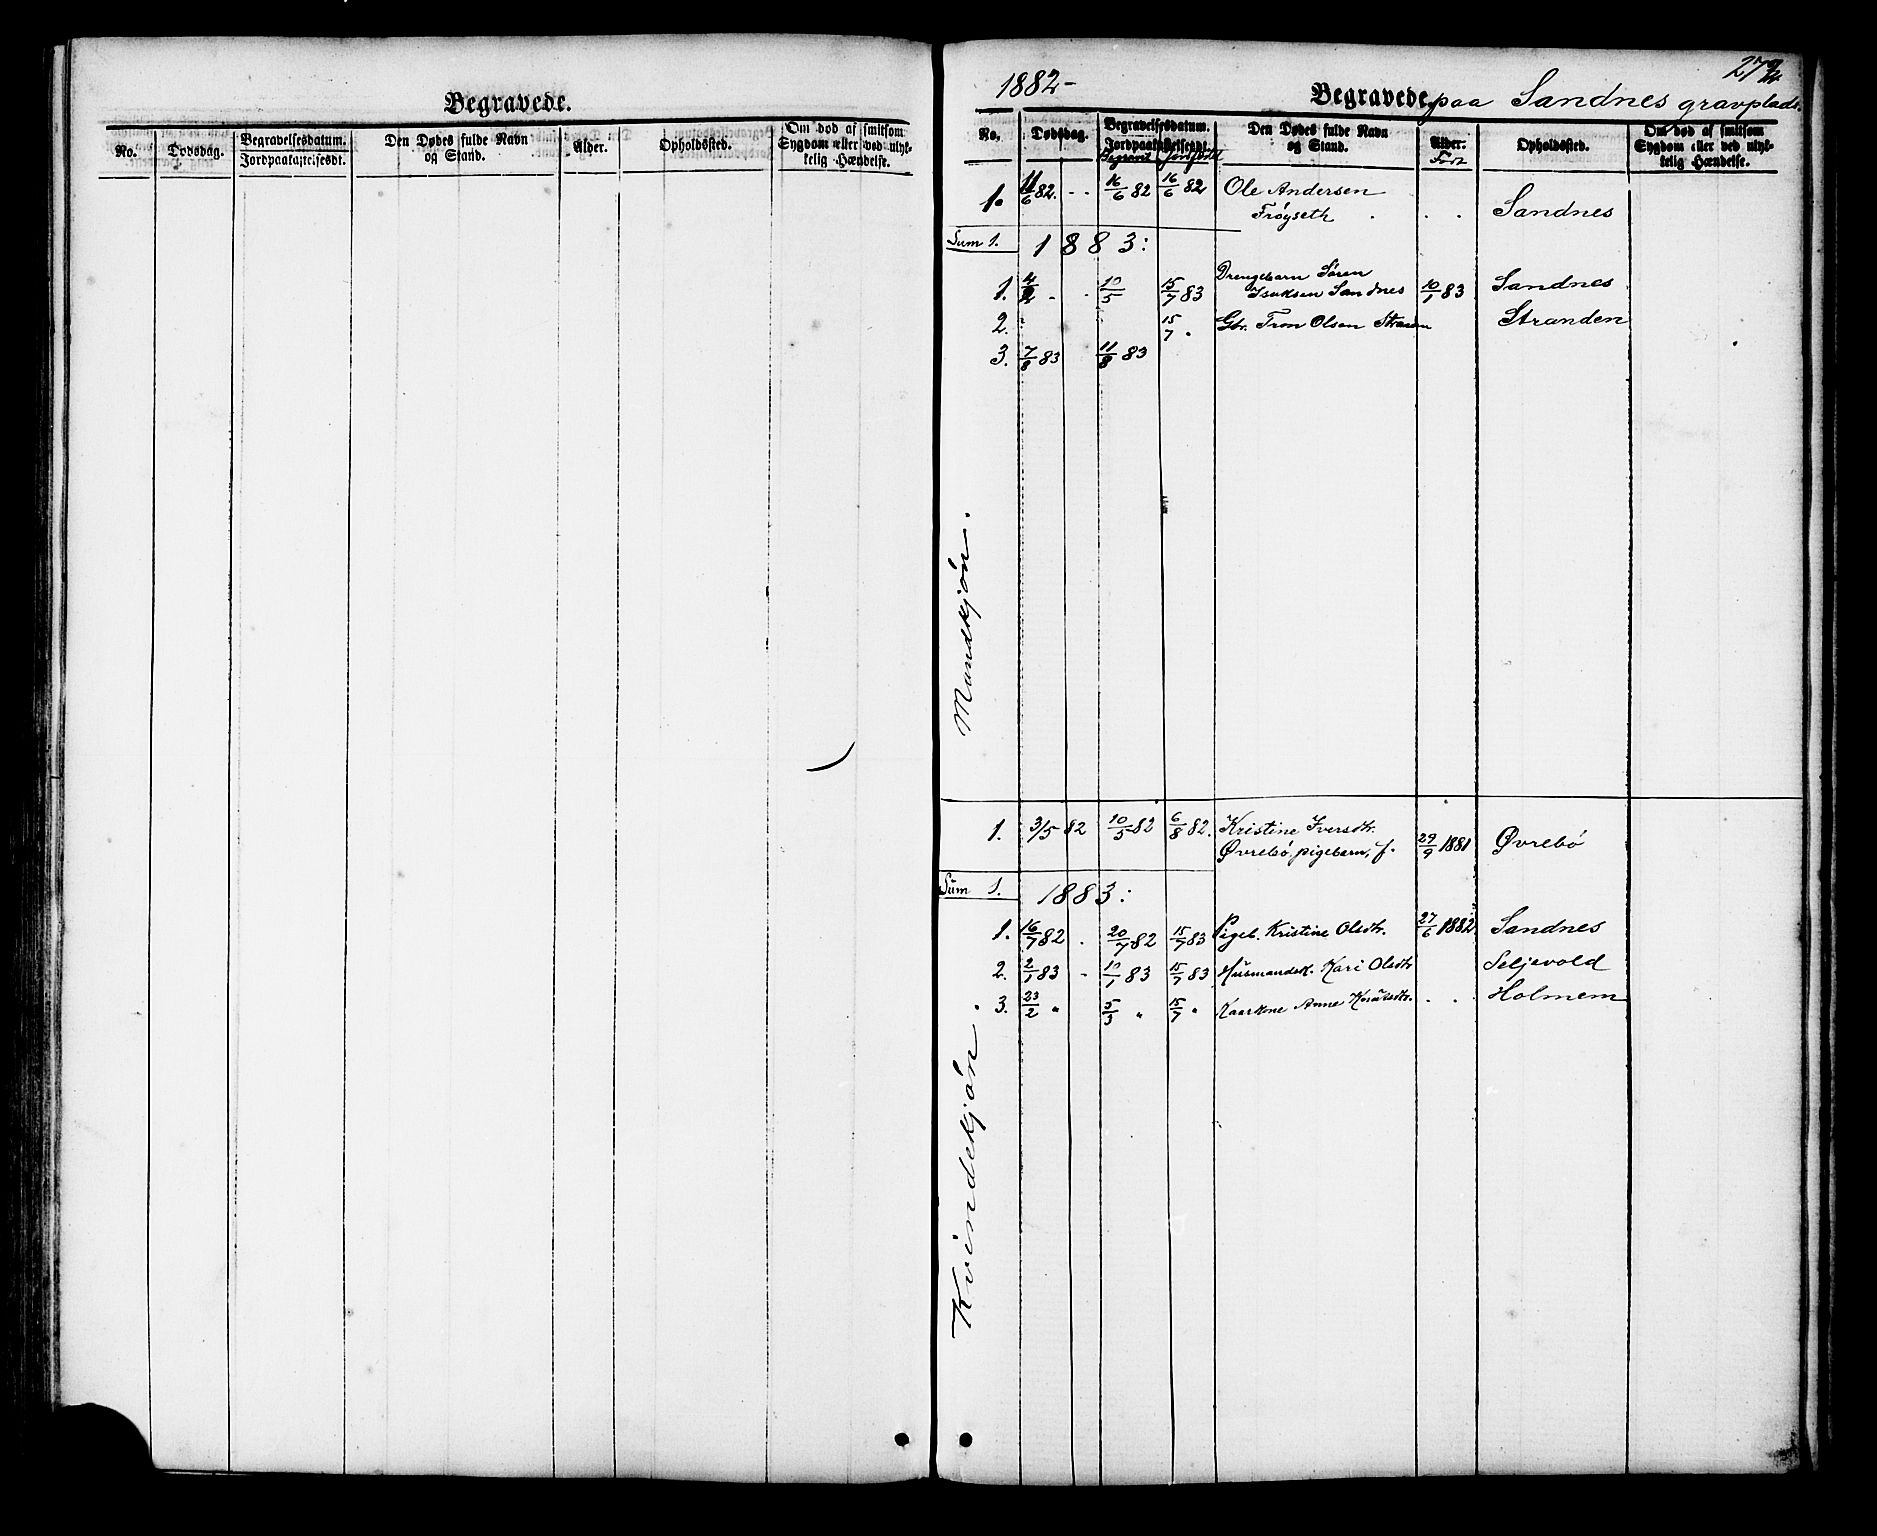 Begravede.
No. Dødsdag. Begravelsesdatum. Jordpaakastelsesdt. Den Dødes fulde Navn og Stand. Alder. Opholdssted. Om død af smitsom Sygdom eller ved ulykkelig Hændelse.
1882- Begravede paa Sandnes gravplads.
No. Dødsdag. Begravelsesdatum. Jordpaakastelsesdt. Den Dødes fulde Navn og Stand. Alder. Opholdssted. Om død af smitsom Sygdom eller ved ulykkelig Hændelse.
Begravet Født
Mandkjøn.
1. 11/6 82. 16/6 82 16/6 82 Ole Andersen
Frøyseth Sandnes
Sum 1. 1883:
Drengebarn Søren
1. 10/5 15/7 83 Isaksen Sandnes 10/1 83 Sandnes
2. 15/7 " Gbr. Tron Olsen Stranden
3. 7/8 83 11/8 83
Kvindekjøn.
1. 3/5 82 10/5 82 6/8 82. Kristine Iversdtr.
Øvrebø, pigebarn, f. 29/9 1881 Øvrebø
Sum 1. 1883:
1. 16/7 82 20/7 82 15/7 83 Pigeb. Kristine Olsdtr. 27/6 1882 Sandnes
2. 2/1 83 10/1 83 15/7 83 Husmandsk. Kari Olsdtr Seljevold
3. 23/2 " 5/3 " 15/7 " Anne Holmem